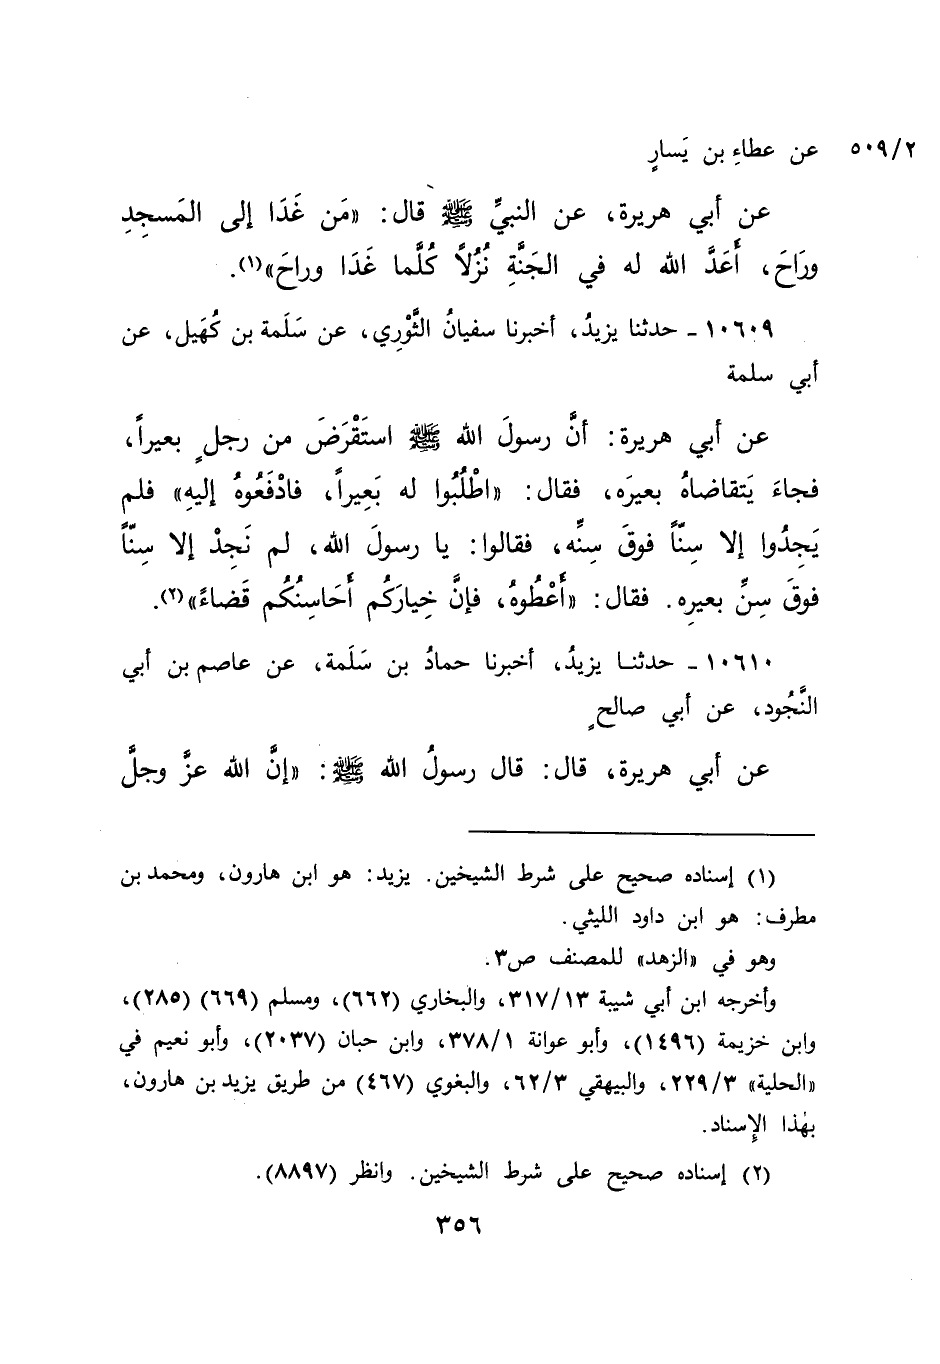 ٥٠٩/٢ عن عطاءِ بن يَسارٍ
عن أبي هريرة، عن النبيِّ ﷺ قال: «مَن غَدَا إلى المَسجِدِ
ورَاحَ، أَعَدَّ الله له في الجَنَّةِ نُزُلاً كُلَّما غَدَا وراحَ»(١).
١٠٦٠٩ ـ حدثنا يزيدُ، أخبرنا سفيانُ الثَّوْرِي، عن سَلَمة بن كُهَيل، عن
أبي سلمة
عن أبي هريرة: أنَّ رسولَ الله ﷺ استَقْرَضَ من رجلٍ بعيراً،
فجاءَ يَتقاضاهُ بعيرَه، فقال: «اطْلُبُوا له بَعِيراً، فادْفَعُوهُ إليهِ» فلم
يَجِدُوا إلا سِنّاً فوقَ سِنِّه، فقالوا: يا رسولَ الله، لم نَجِدْ إلا سِنّاً
فوقَ سِنِّ بعيرِه. فقال: «أَعْطُوهُ، فإنَّ خِيارَكُم أَحَاسِنُكُم قَضاءً»(٢).
١٠٦١٠ ـ حدثنا يزيدُ، أخبرنا حمادُ بن سَلَمة، عن عاصم بن أبي
النَّجُود، عن أبي صالحٍ
عن أبي هريرة، قال: قال رسولُ الله ﷺ: «إنَّ الله عزَّ وجلَّ
(١) إسناده صحيح على شرط الشيخين. يزيد: هو ابن هارون، ومحمد بن
مطرف: هو ابن داود الليثي.
وهو في «الزهد» للمصنف ص٣.
وأخرجه ابن أبي شيبة ٣١٧/١٣، والبخاري (٦٦٢)، ومسلم (٦٦٩) (٢٨٥)،
وابن خزيمة (١٤٩٦)، وأبو عوانة ٣٧٨/١، وابن حبان (٢٠٣٧)، وأبو نعيم في
«الحلية» ٢٢٩/٣، والبيهقي ٦٢/٣، والبغوي (٤٦٧) من طريق يزيد بن هارون،
بهٰذا الإِسناد.
(٢) إسناده صحيح على شرط الشيخين. وانظر (٨٨٩٧).
٣٥٦